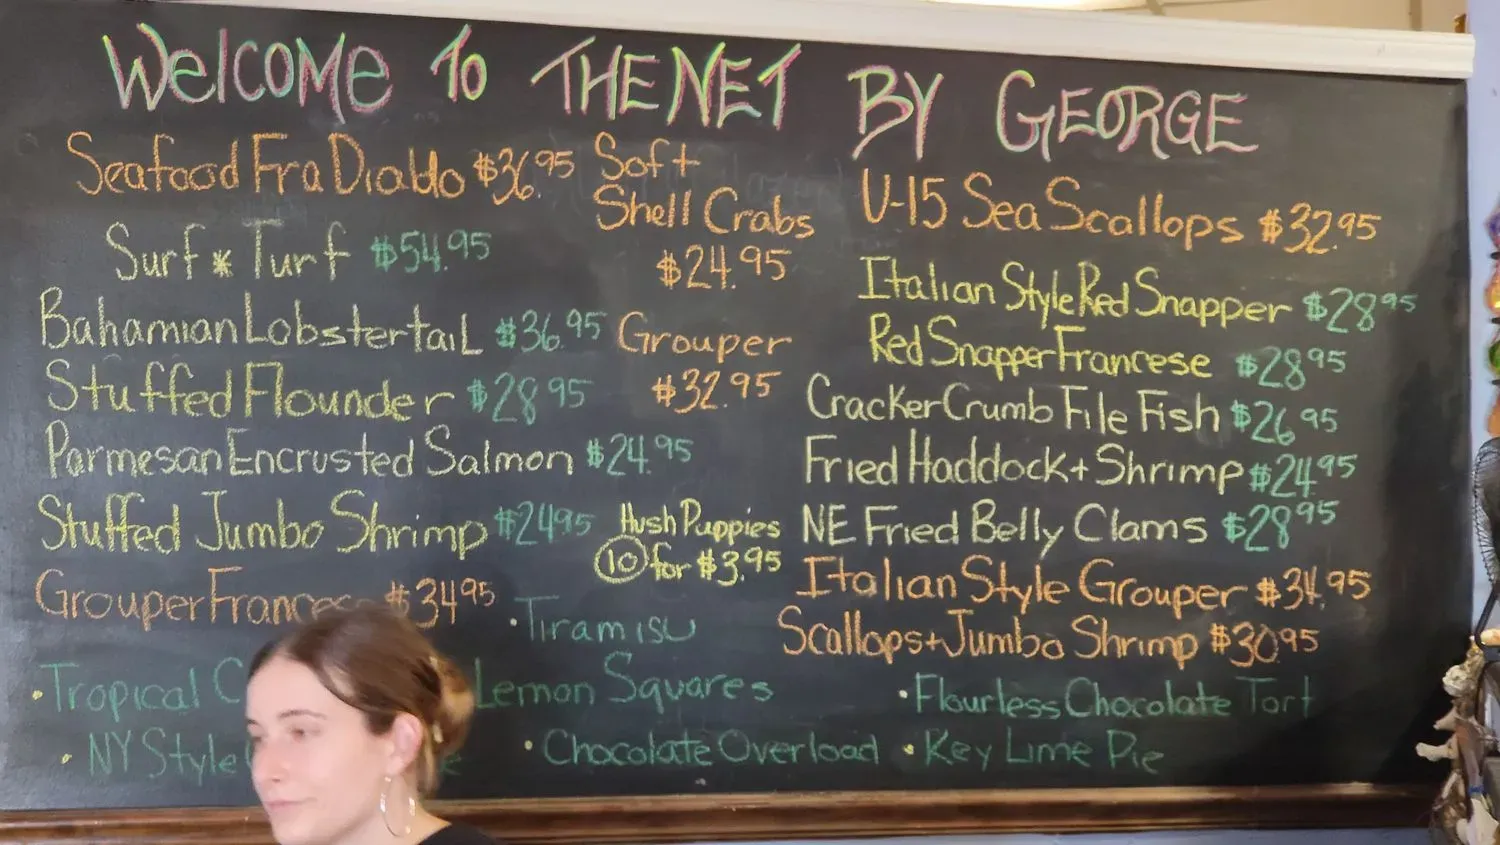 Welcome to THE NET BY GEORGE
Seafood Fra Diablo $36.95
Surf * Turf $54.95
Bahamian Lobstertail $36.95
Stuffed Flounder $28.95
Parmesan Encrusted Salmon $24.95
Stuffed Jumbo Shrimp $24.95
Grouper Francese $34.95
Soft
Shell Crabs
$24.95
Grouper
$32.95
Hush Puppies
10 for $3.95
U-15 Sea Scallops $32.95
Italian Style Red Snapper $28.95
Red Snapper Francese $28.95
Cracker Crumb File Fish $26.95
Fried Haddock + Shrimp $24.95
NE Fried Belly Clams $28.95
Italian Style Grouper $34.95
Scallops + Jumbo Shrimp $30.95
• Tiramisu
• Tropical Lemon Squares • Flourless Chocolate Tort
• NY Style • Chocolate Overload • Key Lime Pie